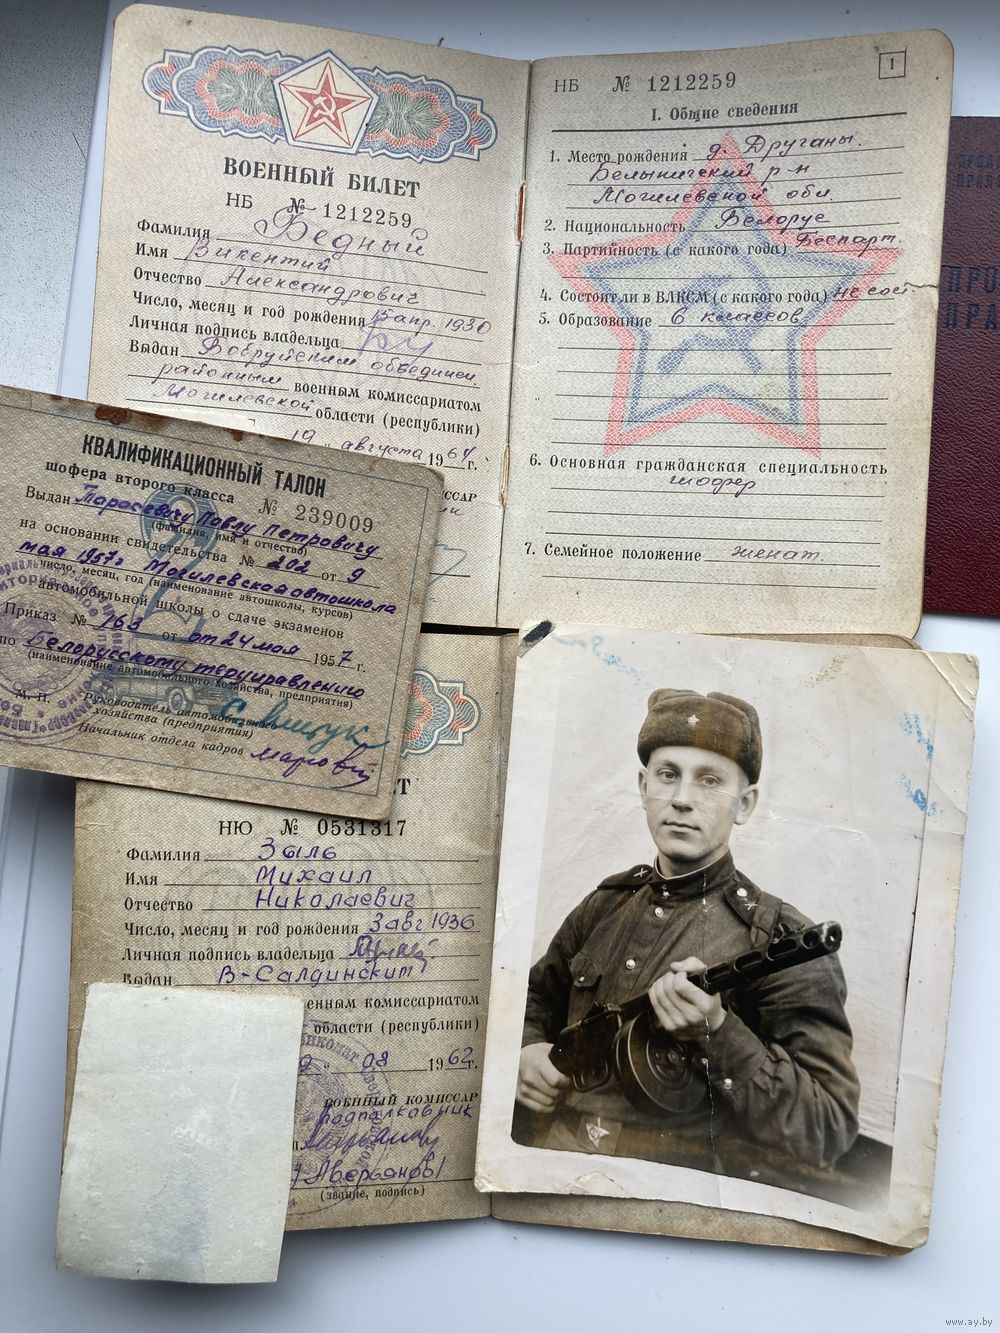 ВОЕННЫЙ БИЛЕТ
НБ № 1212259
Фамилия Бедный
Имя Викентий
Отчество Александрович
Число, месяц и год рождения 15 апр. 1930
Личная подпись владельца
Выдан Бобруйским объединен.
районным военным комиссариатом
Могилевской области (республики)
19 августа 1964 г.
НБ № 1212259
1
I. Общие сведения
1. Место рождения д. Друганы.
Белыничский р-н
Могилевской обл.
2. Национальность Белорус
3. Партийность (с какого года) Беспарт.
4. Состоял ли в ВЛКСМ (с какого года) не сост
5. Образование 6 классов
6. Основная гражданская специальность
шофер
7. Семейное положение женат.
КВАЛИФИКАЦИОННЫЙ ТАЛОН
шофера второго класса № 239009
Выдан Тарасевичу Павлу Петровичу
(фамилия, имя и отчество)
на основании свидетельства № 202 от 9
мая 1957г Могилевская автошкола
число, месяц, год (наименование автошколы, курсов)
автомобильной школы о сдаче экзаменов
Приказ № 763 от от 24 мая 1957 г.
по Белорусскому теруправлению
(наименование автомобильного хозяйства, предприятия)
М. П.
Руководитель автомобильного
хозяйства (предприятия)
Начальник отдела кадров
2
НЮ № 0531317
Фамилия Зыль
Имя Михаил
Отчество Николаевич
Число, месяц и год рождения 3 авг 1936
Личная подпись владельца
Выдан В-Салдинским
енным комиссариатом
области (республики)
08 1962 г.
ВОЕННЫЙ КОМИССАР
подполковник
Аверьянов
(звание, подпись)
ПРО
ПРА
www.ay.by